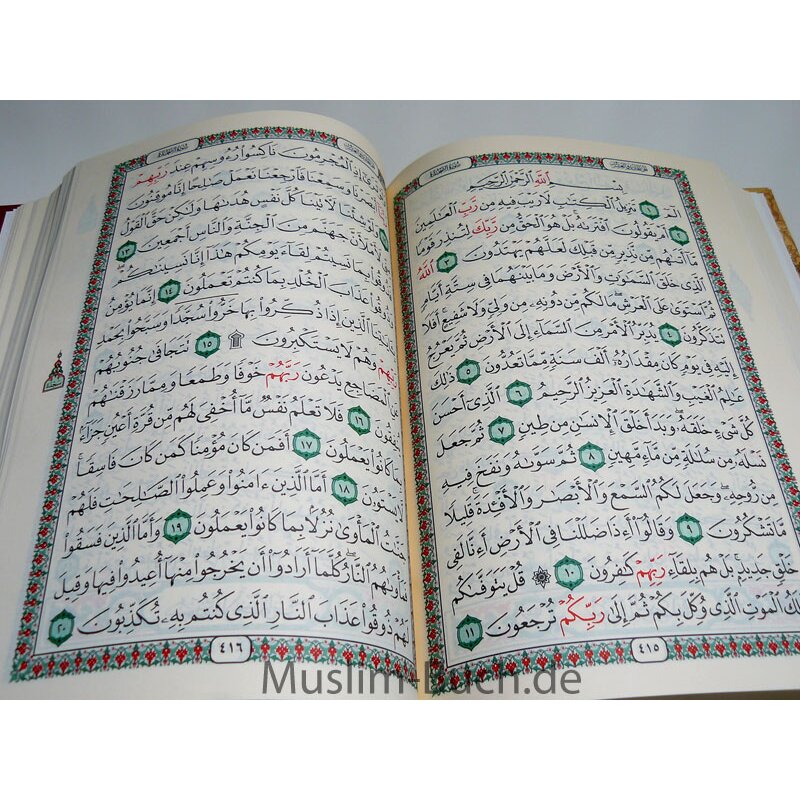 بِسْمِ ٱللَّهِ ٱلرَّحْمَٰنِ ٱلرَّحِيمِ
الٓمٓ ١ تَنزِيلُ ٱلْكِتَٰبِ لَا رَيْبَ فِيهِ مِن رَّبِّ ٱلْعَٰلَمِينَ
٢ أَمْ يَقُولُونَ ٱفْتَرَىٰهُ ۚ بَلْ هُوَ ٱلْحَقُّ مِن رَّبِّكَ لِتُنذِرَ قَوْمًا
مَّآ أَتَىٰهُم مِّن نَّذِيرٍ مِّن قَبْلِكَ لَعَلَّهُمْ يَهْتَدُونَ ٣ ٱللَّهُ
ٱلَّذِى خَلَقَ ٱلسَّمَٰوَٰتِ وَٱلْأَرْضَ وَمَا بَيْنَهُمَا فِى سِتَّةِ أَيَّامٍ
ثُمَّ ٱسْتَوَىٰ عَلَى ٱلْعَرْشِ ۖ مَا لَكُم مِّن دُونِهِۦ مِن وَلِىٍّ وَلَا شَفِيعٍ ۚ أَفَلَا
تَتَذَكَّرُونَ ٤ يُدَبِّرُ ٱلْأَمْرَ مِنَ ٱلسَّمَآءِ إِلَى ٱلْأَرْضِ ثُمَّ يَعْرُجُ
إِلَيْهِ فِى يَوْمٍ كَانَ مِقْدَارُهُۥٓ أَلْفَ سَنَةٍ مِّمَّا تَعُدُّونَ ٥ ذَٰلِكَ
عَٰلِمُ ٱلْغَيْبِ وَٱلشَّهَٰدَةِ ٱلْعَزِيزُ ٱلرَّحِيمُ ٦ ٱلَّذِىٓ أَحْسَنَ
كُلَّ شَىْءٍ خَلَقَهُۥ ۖ وَبَدَأَ خَلْقَ ٱلْإِنسَٰنِ مِن طِينٍ ٧ ثُمَّ جَعَلَ
نَسْلَهُۥ مِن سُلَٰلَةٍ مِّن مَّآءٍ مَّهِينٍ ٨ ثُمَّ سَوَّىٰهُ وَنَفَخَ فِيهِ
مِن رُّوحِهِۦ ۖ وَجَعَلَ لَكُمُ ٱلسَّمْعَ وَٱلْأَبْصَٰرَ وَٱلْأَفْـِٔدَةَ ۚ قَلِيلًا
مَّا تَشْكُرُونَ ٩ وَقَالُوٓا۟ أَءِذَا ضَلَلْنَا فِى ٱلْأَرْضِ أَءِنَّا لَفِى
خَلْقٍ جَدِيدٍۭ ۚ بَلْ هُم بِلِقَآءِ رَبِّهِمْ كَٰفِرُونَ ١٠ ۞ قُلْ يَتَوَفَّىٰكُم
مَّلَكُ ٱلْمَوْتِ ٱلَّذِى وُكِّلَ بِكُمْ ثُمَّ إِلَىٰ رَبِّكُمْ تُرْجَعُونَ ١١
٤١٥
إِذِ ٱلْمُجْرِمُونَ نَاكِسُوا۟ رُءُوسِهِمْ عِندَ رَبِّهِمْ
وَسَمِعْنَا فَٱرْجِعْنَا نَعْمَلْ صَٰلِحًا إِنَّا مُوقِنُونَ
شِئْنَا لَءَاتَيْنَا كُلَّ نَفْسٍ هُدَىٰهَا وَلَٰكِنْ حَقَّ ٱلْقَوْلُ
لَأَمْلَأَنَّ جَهَنَّمَ مِنَ ٱلْجِنَّةِ وَٱلنَّاسِ أَجْمَعِينَ ١٣
بِمَا نَسِيتُمْ لِقَآءَ يَوْمِكُمْ هَٰذَآ إِنَّا نَسِينَٰكُمْ ۖ
وَذُوقُوا۟ عَذَابَ ٱلْخُلْدِ بِمَا كُنتُمْ تَعْمَلُونَ ١٤ إِنَّمَا يُؤْمِنُ
بِـَٔايَٰتِنَا ٱلَّذِينَ إِذَا ذُكِّرُوا۟ بِهَا خَرُّوا۟ سُجَّدًا وَسَبَّحُوا۟ بِحَمْدِ
رَبِّهِمْ وَهُمْ لَا يَسْتَكْبِرُونَ ۩ ١٥ تَتَجَافَىٰ جُنُوبُهُمْ
عَنِ ٱلْمَضَاجِعِ يَدْعُونَ رَبَّهُمْ خَوْفًا وَطَمَعًا وَمِمَّا رَزَقْنَٰهُمْ
يُنفِقُونَ ١٦ فَلَا تَعْلَمُ نَفْسٌ مَّآ أُخْفِىَ لَهُم مِّن قُرَّةِ أَعْيُنٍ جَزَآءًۢ
بِمَا كَانُوا۟ يَعْمَلُونَ ١٧ أَفَمَن كَانَ مُؤْمِنًا كَمَن كَانَ فَاسِقًا ۚ
لَّا يَسْتَوُۥنَ ١٨ أَمَّا ٱلَّذِينَ ءَامَنُوا۟ وَعَمِلُوا۟ ٱلصَّٰلِحَٰتِ فَلَهُمْ
جَنَّٰتُ ٱلْمَأْوَىٰ نُزُلًۢا بِمَا كَانُوا۟ يَعْمَلُونَ ١٩ وَأَمَّا ٱلَّذِينَ فَسَقُوا۟
فَمَأْوَىٰهُمُ ٱلنَّارُ ۖ كُلَّمَآ أَرَادُوٓا۟ أَن يَخْرُجُوا۟ مِنْهَآ أُعِيدُوا۟ فِيهَا وَقِيلَ
لَهُمْ ذُوقُوا۟ عَذَابَ ٱلنَّارِ ٱلَّذِى كُنتُم بِهِۦ تُكَذِّبُونَ ٢٠
٤١٦
Muslim-Buch.de